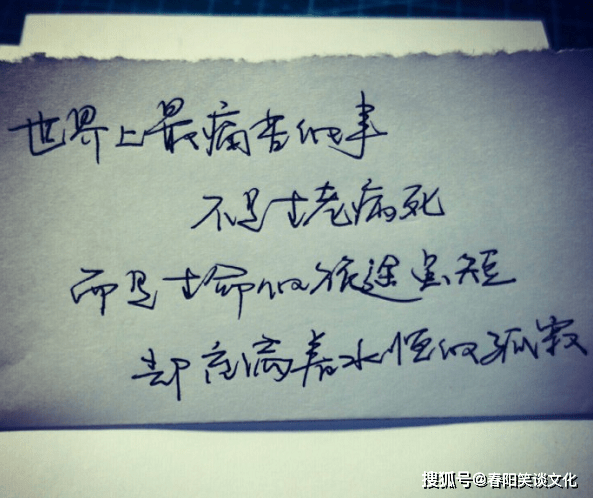 世界上最痛苦的事
不是生老病死
而是生命的旅途虽短
却充满着永恒的孤寂
搜狐号@春阳笑谈文化